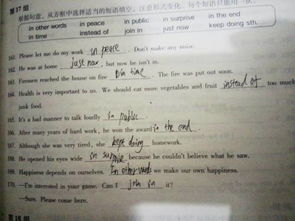 第37组
根据句意,从方框中选择适当的短语填空。
in other words in peace in public in surprise in the end
in time instead of join in just now keep doing sth.
Please let me do my work in peace. Don't make any noise.
He was at home just now, but now he is not in.
Firemen reached the house on fire in time. The fire was put out soon.
164. Health is very important to us. We should eat more vegetables and fruit instead of too much
junk food.
165. It's a bad manner to talk loudly in public.
166. After many years of hard work, he won the award in the end.
167. Although she was very tired, she kept doing homework.
168. He opened his eyes wide in surprise because he couldn't believe what he saw.
169. Happiness depends on ourselves. In other words we make our own happiness.
170. —I'm interested in your game. Can I join in it?
—Sure. Please come here.